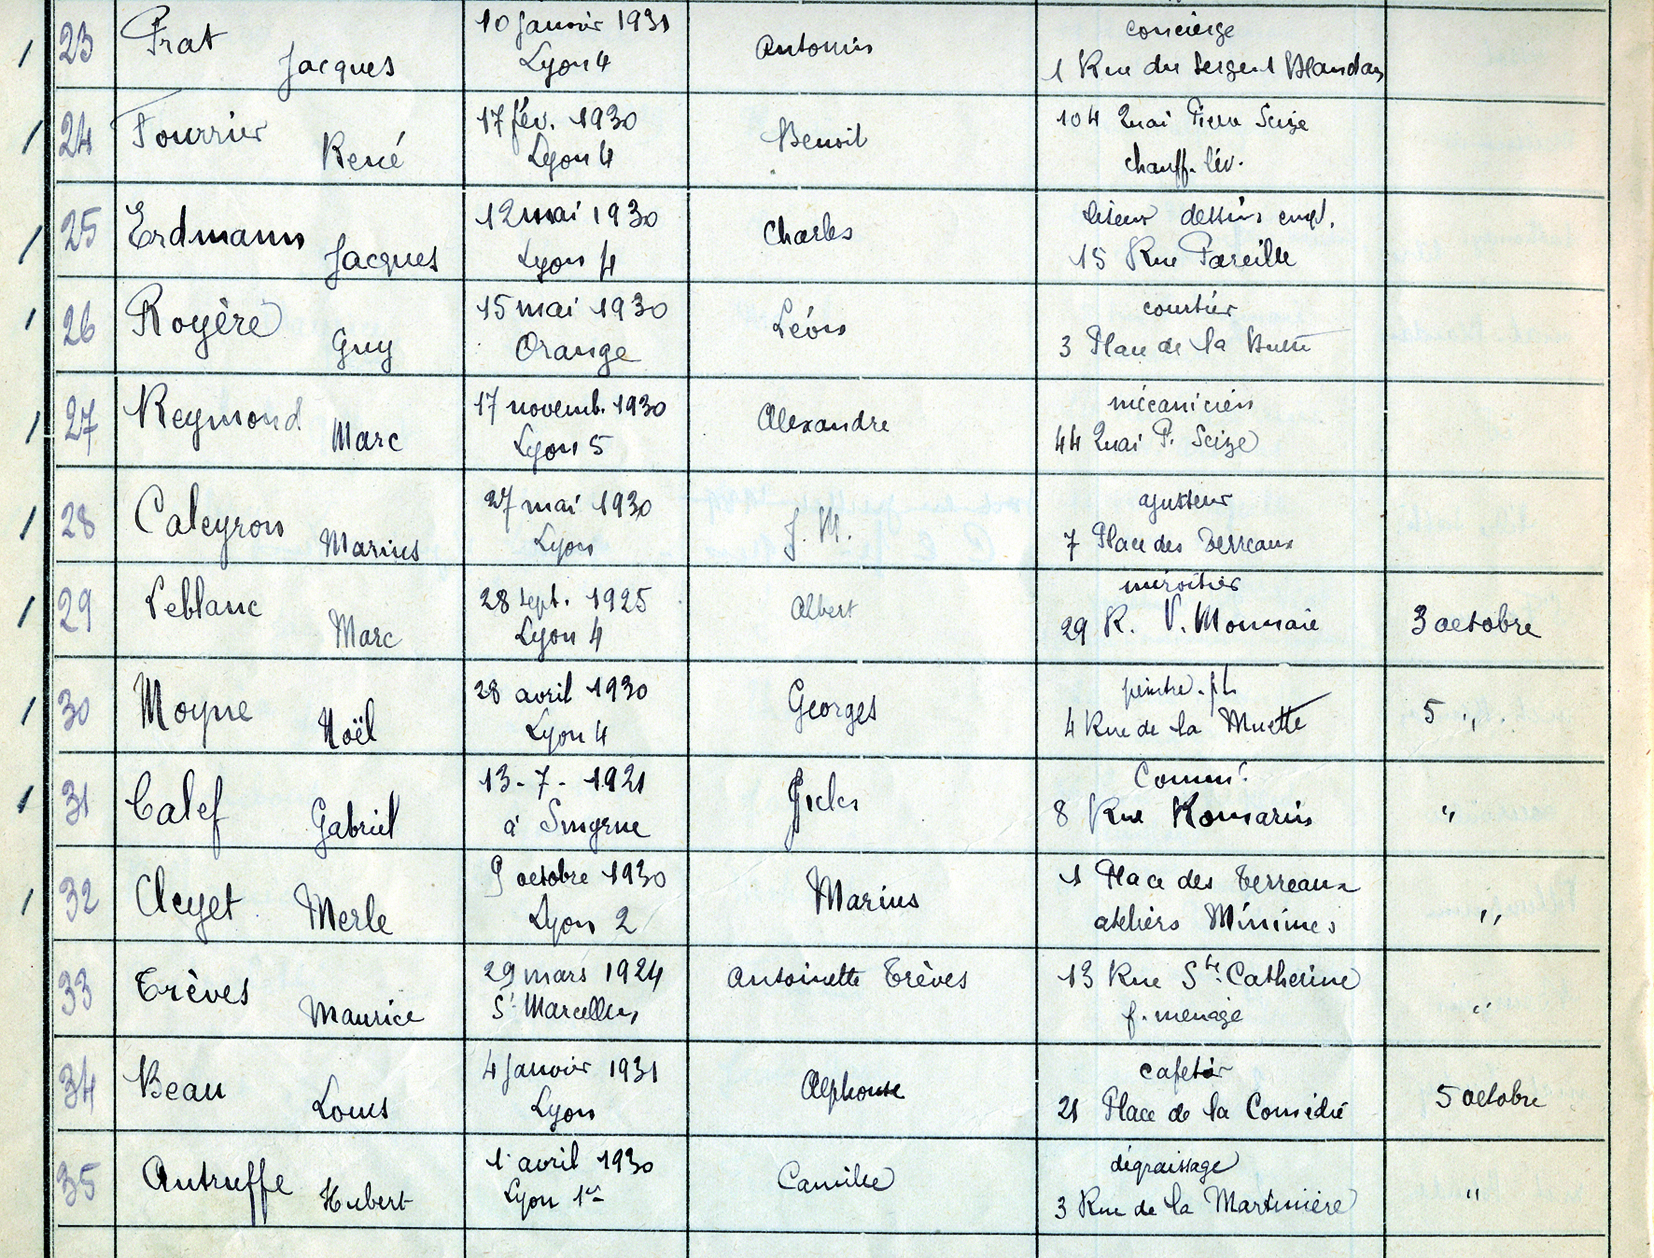 23 Prat Jacques 10 Janvier 1931 Lyon 4 Antonin concierge 1 Rue du Sergent Blandan
24 Fourrier René 17 fév. 1930 Lyon 4 Benoit 104 Quai Pierre Scize chauff. liv.
25 Erdmann Jacques 12 mai 1930 Lyon 4 Charles liseur dessins empl. 15 Rue Pareille
26 Royère Guy 15 mai 1930 Orange Léon courtier 3 Place de la Butte
27 Reymond Marc 17 novemb. 1930 Lyon 5 Alexandre mécanicien 44 Quai P. Scize
28 Caleyron Marius 27 mai 1930 Lyon J. M. ajusteur 7 Place des Terreaux
29 Leblanc Marc 28 sept. 1925 Lyon 4 Albert miroitier 29 R. V. Monnaie 3 octobre
30 Moyne Noël 28 avril 1930 Lyon 4 Georges peintre. pl 4 Rue de la Muette 5 "
31 Calef Gabriel 13-7-1921 à Smyrne 8 Rue Romarin "
32 Cleyet Merle 9 octobre 1930 Lyon 2 Marius 1 Place des Terreaux ateliers Minimes "
33 Trèves Maurice 29 mars 1924 St Marcellin Antoinette Trèves 13 Rue Ste Catherine f. menage "
34 Beau Louis 4 Janvier 1931 Lyon Alphonse cafetier 21 Place de la Comédie 5 octobre
35 Autruffe Hubert 1 avril 1930 Lyon 1er Camille dégraissage 3 Rue de la Martinière "